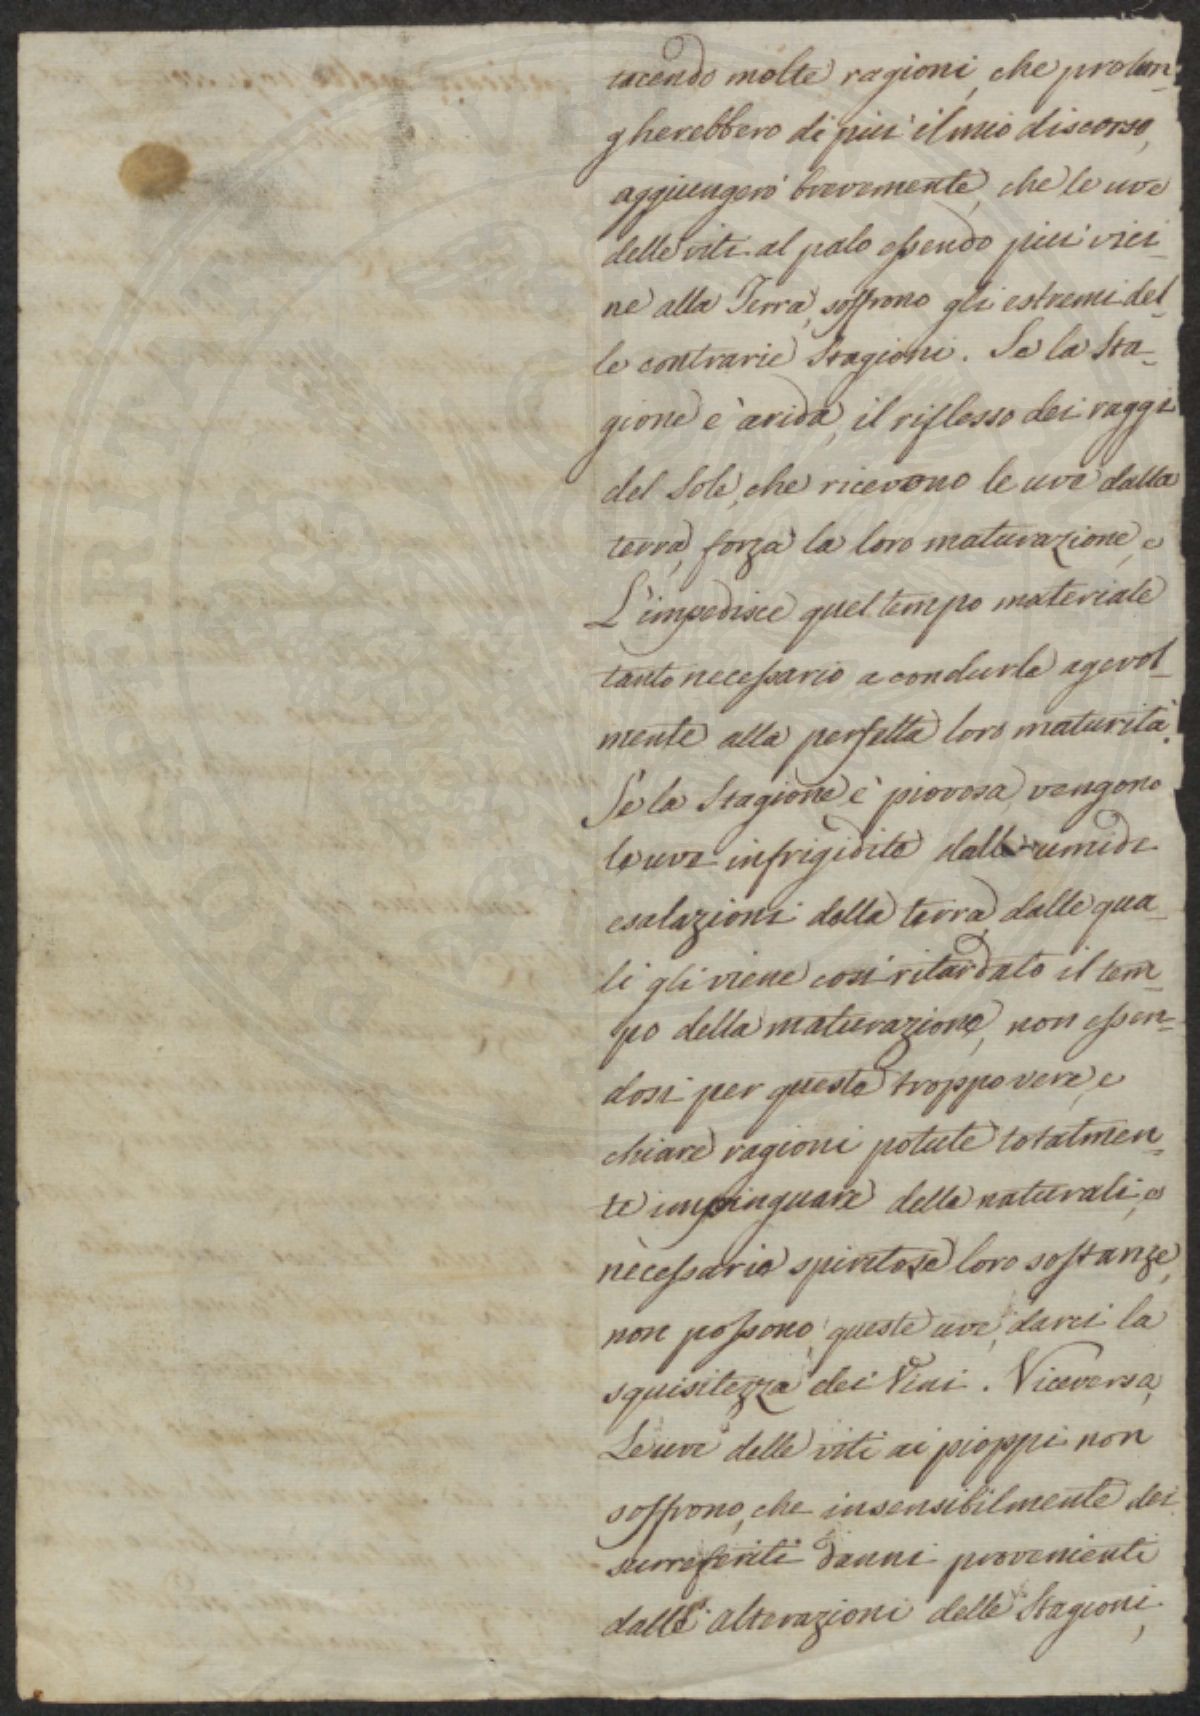 tacendo molte ragioni, che prolun-
gherebbero di più il mio discorso,
aggiungerò brevemente, che le uve
delle viti al palo essendo più vici-
ne alla Terra, soffrono gli estremi del-
le contrarie Stagioni. Se la Sta-
gione è arida, il riflesso dei raggi
del Sole, che ricevono le uve dalla
terra, forza la loro maturazione, e
L'impedisce quel tempo materiale
tanto necessario a condurle agevol-
mente alla perfetta loro maturità.
Se la Stagione è piovosa, vengono
le uve infrigidite dalle umide
esalazioni della terra, dalle qua-
li gli viene così ritardato il tem-
po della maturazione, non essen-
dosi per queste troppo vere, e
chiare ragioni potute totalmen-
te impinguare delle naturali, e
necessarie spiritose loro sostanze,
non possono, queste uve, darci la
squisitezza dei Vini. Viceversa,
Le uve delle viti ai pioppi non
soffrono, che insensibilmente dei
surreferiti danni provenienti
dalle alterazioni delle Stagioni,